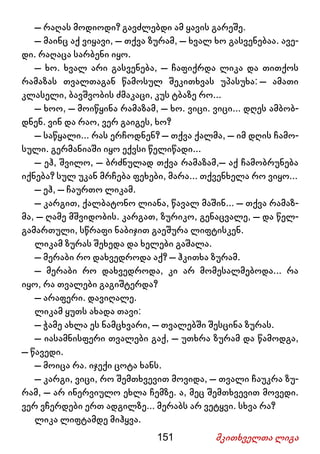 — რაღას მოდიოდი? გავძლებდი ამ ყავის გარეშე.
— მაინც აქ ვიყავი, — თქვა ზურამ, — ხვალ ხო გასვენებაა. ავე-
დი. რაღაცა სარბენი იყო.
— ხო. ხვალ არი გასვენება, — ჩაფიქრდა ლიკა და თითქოს
რამაზას თვალთაგან წამოსულ შეკითხვას უპასუხა: — ამათი
კლასელი, ბავშვობის ძმაკაცი, კუს ტბაზე რო...
— ხოო, — მოიწყინა რამაზამ, — ხო. ვიცი. ვიცი... დღეს ამბობ-
დნენ. ვინ და რაო, ვერ გაიგეს, ხო?
— საწყალი... რას ერჩოდნენ? — თქვა ქალმა, — იმ დღის ჩამო-
სული. გერმანიაში იყო ექვსი წელიწადი...
— ეჰ, შვილო, — ბრძნულად თქვა რამაზამ,— აქ ჩამობრუნება
იქნება? სულ უკან მრჩება ფეხები, მარა... თქვენხელა რო ვიყო...
— ეჰ, — ჩაურთო ლიკამ.
— კარგით, ქალბატონო ლიანა, წავალ მაშინ... — თქვა რამაზ-
მა, — ღამე მშვიდობის. კარგათ, ზურიკო, გენაცვალე, — და წელ-
გამართული, სწრაფი ნაბიჯით გაეშურა ლიფტისკენ.
ლიკამ ზურას შეხედა და ხელები გაშალა.
— მერაბი რო დახვედროდა აქ? — ჰკითხა ზურამ.
— მერაბი რო დახვედროდა, კი არ მომესალმებოდა... რა
იყო, რა თვალები გაგიშტერდა?
— არაფერი. დავიღალე.
ლიკამ ყუთს ახადა თავი:
— ჭამე ახლა ეს ნამცხვარი, — თვალებში შესცინა ზურას.
— იასამნისფერი თვალები გაქ, — უთხრა ზურამ და წამოდგა,
— წავედი.
— მოიცა რა. იჯექი ცოტა ხანს.
— კარგი, ვიცი, რო შემთხვევით მოვიდა, — თვალი ჩაუკრა ზუ-
რამ, — არ ინერვიულო ეხლა ჩემზე. ა, მეც შემთხვევით მოვედი.
ვერ ვჩერდები ერთ ადგილზე... მერაბს არ ვეტყვი. სხვა რა?
ლიკა ლიფტამდე მიჰყვა.
151 მკითხველთა ლიგა